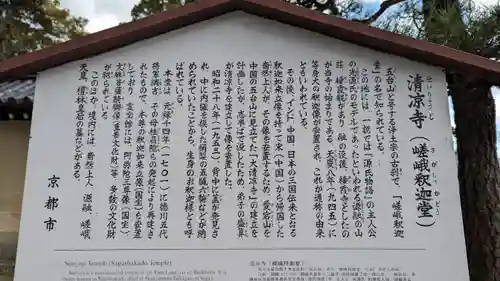 清凉寺（嵯峨釈迦堂）
五台山と号する浄土宗の古刹で、「嵯峨釈迦
堂」の名で知られている。
この地には、一説では「源氏物語」の主人公
の光源氏のモデルであったといわれる源融の山
荘・棲霞観があり、融の没後、棲霞寺としたの
が当寺の始まりである。天慶八年（九四五）に
等身大の釈迦像が安置され、これが通称の由来
ともいわれている。
その後、インド、中国、日本の三国伝来となる
釈迦如来立像を持って宋（中国）から帰国した
奝然上人が、その像を安置するため、愛宕山を
中国の五台山に見立てた「清凉寺」の建立を
計画したが、志半ばで没したため、弟子の盛算
が清凉寺を建立して像を安置した。
昭和二十八年（一九五三）、背中に蓋が発見さ
れ、中に内臓を模した絹製の五臓六腑などが納
められていたことから、生身のお釈迦様とも呼
ばれている。
本堂は元禄十四年（一七〇一）に徳川五代
将軍綱吉、その母桂昌院らの発起により再建さ
れたもので、本尊の釈迦如来立像（国宝）を安置
しており、霊宝館には、阿弥陀三尊像（国宝）、
文殊菩薩騎獅像（重要文化財）等、多数の文化財
が収められている。
このほか、境内には、奝然上人、源融、嵯峨
天皇、檀林皇后の墓などがある。
京都市
Seiryoji Temple (Sagashakado Temple)